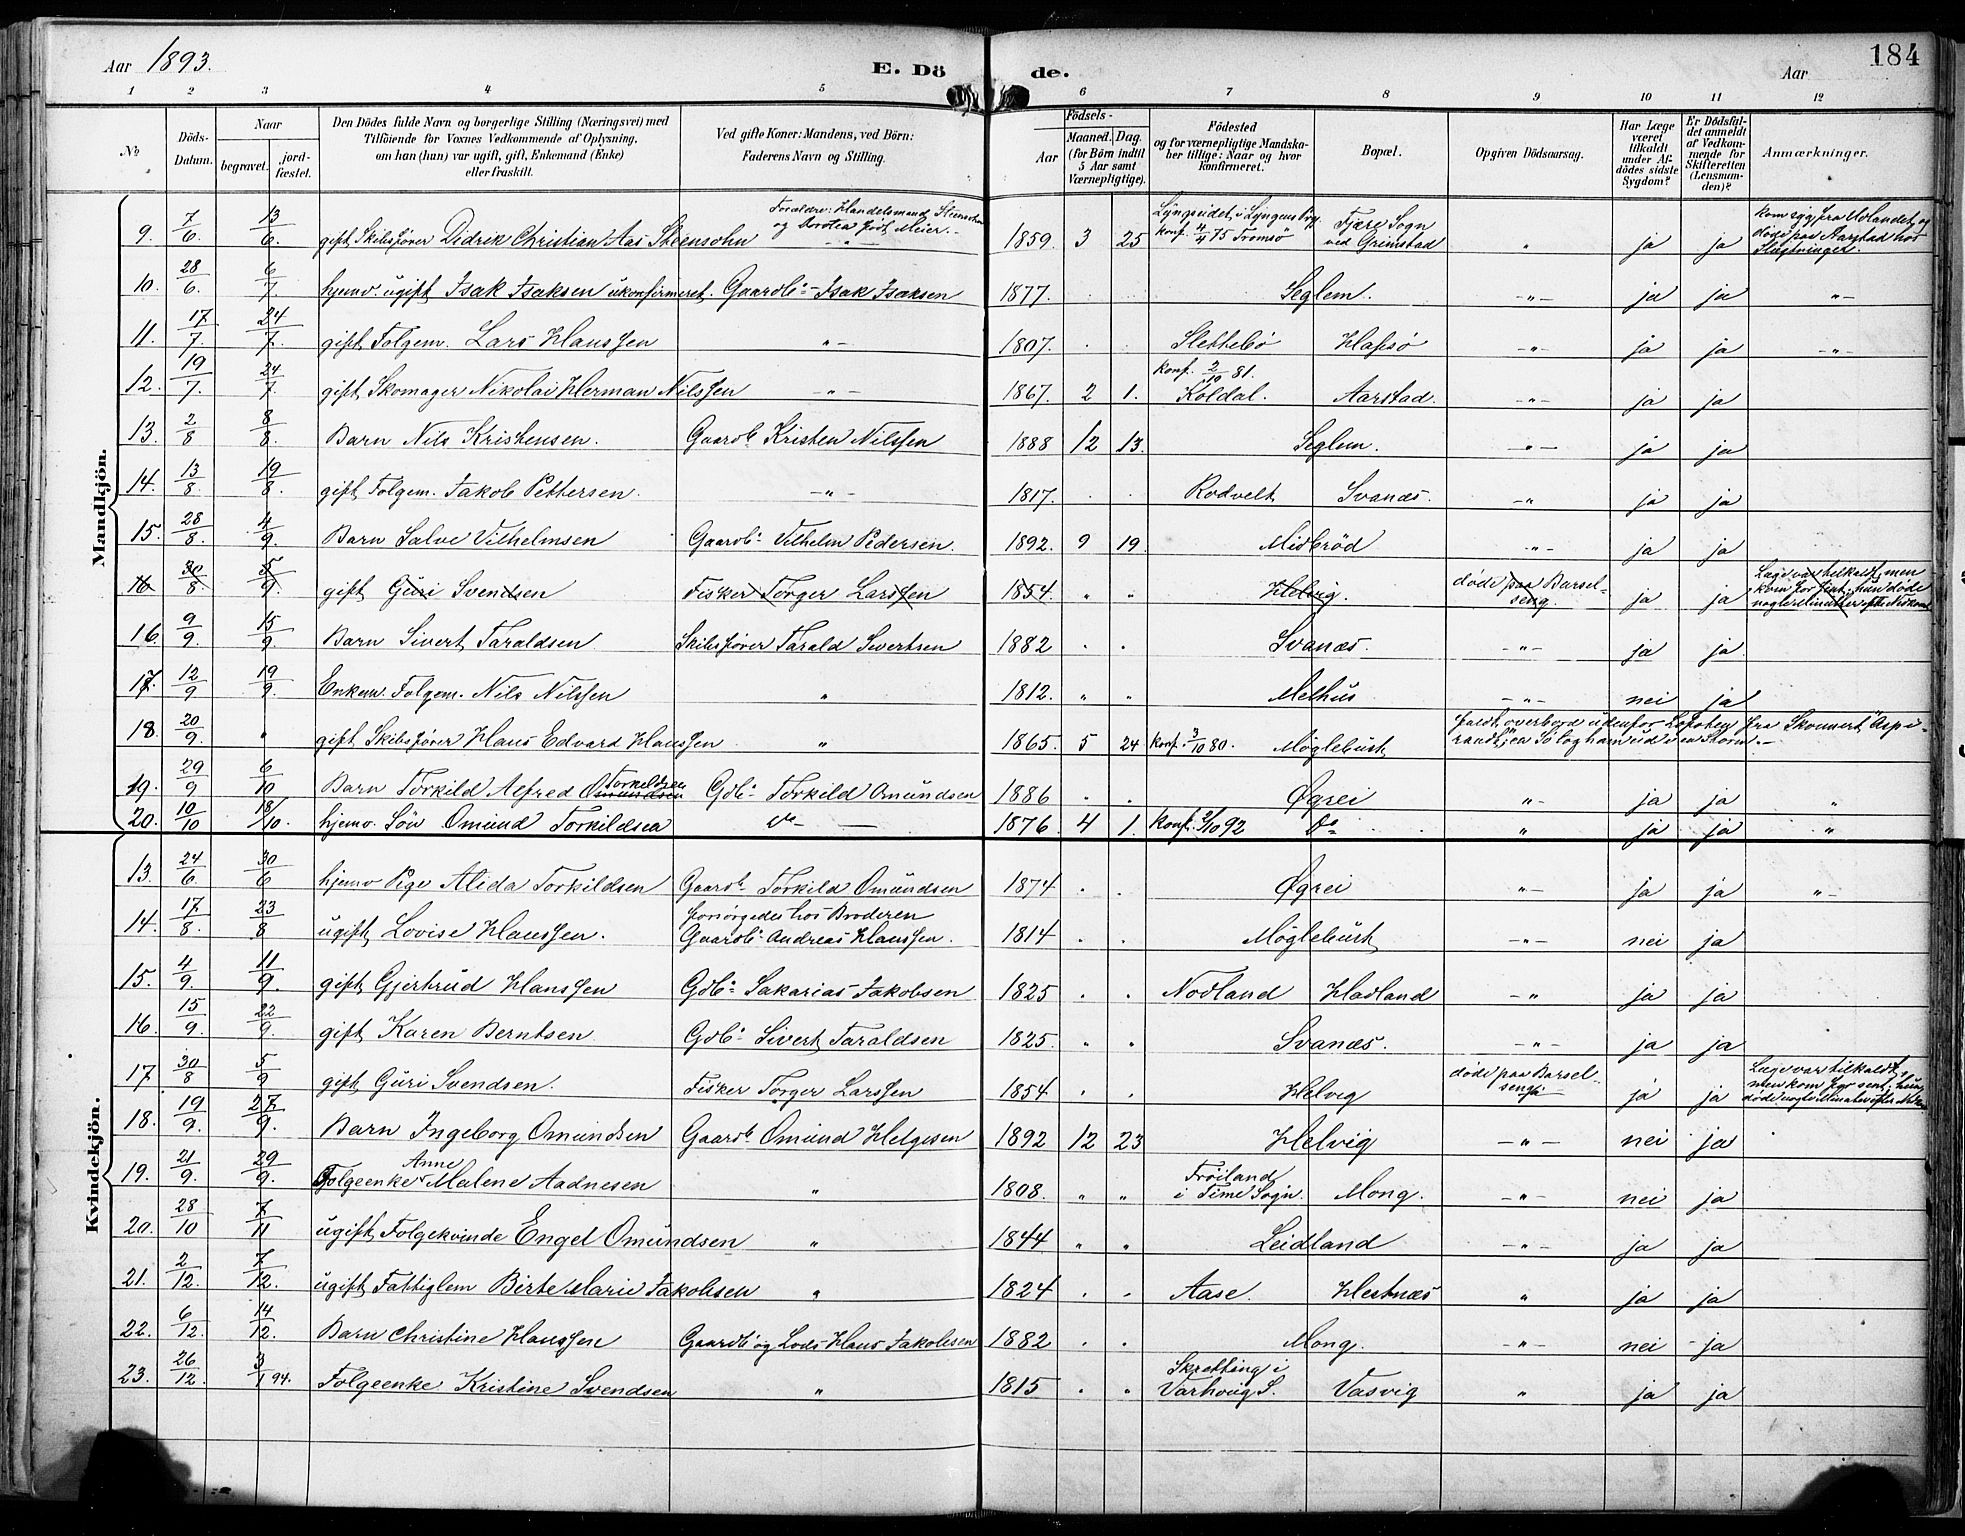 Aar 1893.
E. Döde.
Aar
184
1 2 3 4 5 6 7 8 9 10 11 12
No
Döds-Datum.
Naar
begravet.
jord-fæstet.
Den Dödes fulde Navn og borgerlige Stilling (Næringsvei) med
Tilföiende for Voxnes Vedkommende af Oplysning,
om han (hun) var ugift, gift, Enkemand (Enke)
eller fraskilt.
Ved gifte Koner: Mandens, ved Börn:
Faderens Navn og Stilling.
Födsels-
Aar
Maaned. Dag.
(for Börn indtil
5 Aar samt
Værnepligtige).
Födested
og for værnepligtige Mandska-
ber tillige: Naar og hvor
konfirmeret.
Bopæl.
Opgiven Dödsaarsag.
Har Læge
været
tilkaldt
under Af-
dödes sidste
Sygdom?
Er Dödsfal-
det anmeldt
af Vedkom-
mende for
Skifteretten
(Lensman-
den)?
Anmærkninger.
Mandkjön.
9. 7/6 13/6 gift Skibsfører Didrik Christian Aas Steensohn Forældre: Handelsmand Steensohn og Dorotea født Meier. 1859 3 25 Lyngseidet i Lyngens konf. 4/4 75 Tromsø Fjære Sogn ved Grimstad " ja ja kom syg fra Udlandet og døde paa Aarstad hos Slægtninger.
10. 28/6 6/7 hjemv. ugift Isak Isaksen ukonfirmeret. Gaardb: Isak Isaksen 1877. . . Seglem. -"- ja ja -"-
11. 17/7 24/7 gift Folgem. Lars Hanssen -"- 1807. . . Slettebø Hafsø -"- ja ja -"-
12. 19/7 24/7 gift Skomager Nikolai Herman Nilssen -"- 1867. 2 1. konf. 2/10 81. Koldal. Aarstad. -"- ja ja
13. 2/8 8/8 Barn Nils Kristensen. Gaardb. Kristen Nilssen 1888 12 13. Seglem. -"- ja ja
14. 13/8 19/8 gift Folgem. Jakob Pettersen. -"- 1817. . . Rodvelt Svanæs. -"- ja ja
15. 28/8 4/9 Barn Salve Vilhelmsen Gaardb: Vilhelm Pedersen. 1892. 9 19. Midbrød -"- ja ja
16 30/8 5/9 gift Guri Svendsen Fisker Torger Larssen 1854. " " Helvig. døde paa Barselseng. ja ja Læge var tilkaldt, men kom for sent; hun døde nogle Minutter efter Nedkomst
16. 9/9 15/9 Barn Sivert Taraldsen. Skibsfører Tarald Sivertsen 1882 . . Svanæs. -"- ja ja
17. 12/9 19/9 Enkem. Folgem. Nils Nilssen " 1812. " " Melhus -"- nei ja
18. 20/9 " gift Skibsfører Hans Edvard Hanssen " 1865. 5 24 konf. 3/10 80. Møglebust faldt overbord udenfor Lofoten fra Skonnert "Aspirandt" ved en Storm.
19. 29/9 6/10 Barn Torkild Alfred Omundsen Torkildsen Gdb: Torkild Omundsen 1886 . . Øgrei " ja ja "
20. 10/10 18/10. hjemv. Søn Omund Torkildsen do 1876 4 1. konf. 2/10 92 do " ja ja "
Kvindekjön.
13. 24/6 30/6 hjemv Pige Alida Torkildsen Gaardb. Torkild Omundsen 1874 . . Øgrei -"- ja ja -"-
14. 17/8. 23/8 ugift Lovise Hanssen. forsørgedes hos Broderen Gaardb: Andreas Hanssen. 1814 . . Møglebust -"- nei ja
15. 4/9. 11/9. gift Gjertrud Hanssen Gdb: Sakarias Jakobsen 1825 . . Nodland Hadland -"- ja ja
16. 15/9. 22/9. gift Karen Berntsen Gdb: Sivert Taraldsen 1825. " " Svanæs. -"- ja ja
17. 30/8 5/9 gift Guri Svendsen. Fisker Torger Larssen 1854 . . Helvig døde paa Barselseng ja ja Læge var tilkaldt, men kom for sent; hun døde nogle Minutter efter
18. 19/9. 27/9. Barn Ingeborg Omundsen Gaardb Omund Helgesen 1892 12 23 Helvig -"- nei ja
19. 21/9. 29/9. Folgeenke Anne Malene Aadnesen " 1808. " " Frøiland i Time Sogn. Mong. -"- nei ja
20. 28/10 7/11 ugift Folgekvinde Engel Omundsen " 1844 " " Leidland -"- ja ja
21. 2/12. 7/12. ugift Fattiglem Birte Marie Jakobsen " 1824 . . Aase. Hestnæs " ja ja
22. 6/12. 14/12. Barn Christine Hanssen Gaardb: og Lods Hans Jakobsen 1882 . . Mong. -"- nei ja
23. 26/12. 3/1 94. Folgeenke Kristine Svendsen " 1815 . " Skretting i Varhoug S. Vasvig " ja ja